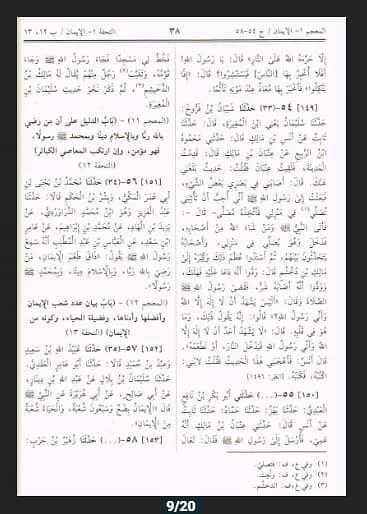 المعجم ١- الإيمان / ح ٥٤-٥٨
٣٨
التحفة ١- الإيمان / ب ١٢، ١٣
إِلَّا حَرَّمَهُ اللهُ عَلَى النَّارِ» قَالَ: يَا رَسُولَ اللهِ!
أَفَلَا أُخْبِرُ بِهَا [النَّاسَ] فَيَسْتَبْشِرُوا؟ قَالَ: «إِذًا
يَتَّكِلُوا» فَأَخْبَرَ بِهَا مُعَاذٌ عِنْدَ مَوْتِهِ تَأَثُّمًا.
[١٤٩] ٥٤-(٣٣) حَدَّثَنَا شَيْبَانُ بْنُ فَرُّوخَ:
حَدَّثَنَا سُلَيْمَانُ يَعْنِي ابْنَ الْمُغِيرَةِ، قَالَ: حَدَّثَنَا
ثَابِتٌ عَنْ أَنَسِ بْنِ مَالِكٍ قَالَ: حَدَّثَنِي مَحْمُودُ
ابْنُ الرَّبِيعِ عَنْ عِتْبَانَ بْنِ مَالِكٍ قَالَ: قَدِمْتُ
الْمَدِينَةَ، فَلَقِيتُ عِتْبَانَ فَقُلْتُ: حَدِيثٌ بَلَغَنِي
عَنْكَ. قَالَ: أَصَابَنِي فِي بَصَرِي بَعْضُ الشَّيْءِ،
فَبَعَثْتُ إِلَى رَسُولِ اللهِ ﷺ أَنِّي أُحِبُّ أَنْ تَأْتِيَنِي
تُصَلِّيَ(١) فِي مَنْزِلِي، فَأَتَّخِذَهُ مُصَلًّى- قَالَ -:
فَأَتَى النَّبِيُّ ﷺ وَمَنْ شَاءَ اللهُ مِنْ أَصْحَابِهِ،
فَدَخَلَ وَهُوَ يُصَلِّي فِي مَنْزِلِي، وَأَصْحَابُهُ
يَتَحَدَّثُونَ بَيْنَهُمْ، ثُمَّ أَسْنَدُوا عُظْمَ ذَلِكَ وَكِبْرَهُ إِلَى
مَالِكِ بْنِ دُخْشُمٍ قَالَ: وَدُّوا أَنَّهُ دَعَا عَلَيْهِ فَهَلَكَ،
وَوَدُّوا أَنَّهُ أَصَابَهُ شَرٌّ، فَقَضَى رَسُولُ اللهِ ﷺ
الصَّلَاةَ وَقَالَ: «أَلَيْسَ يَشْهَدُ أَنْ لَا إِلَهَ إِلَّا اللهُ
وَأَنِّي رَسُولُ اللهِ؟» قَالُوا: إِنَّهُ يَقُولُ ذَلِكَ، وَمَا
هُوَ فِي قَلْبِهِ. قَالَ: «لَا يَشْهَدُ أَحَدٌ أَنْ لَا إِلَهَ إِلَّا
اللهُ وَأَنِّي رَسُولُ اللهِ فَيَدْخُلَ النَّارَ، أَوْ تَطْعَمَهُ».
قَالَ أَنَسٌ: فَأَعْجَبَنِي هَذَا الْحَدِيثُ فَقُلْتُ لِابْنِي:
اكْتُبْهُ، فَكَتَبَهُ. [انظر: ١٤٩٦]
[١٥٠] ٥٥-(...) حَدَّثَنِي أَبُو بَكْرِ بْنُ نَافِعٍ
الْعَبْدِيُّ: حَدَّثَنَا بَهْزٌ: حَدَّثَنَا حَمَّادٌ: حَدَّثَنَا ثَابِتٌ
عَنْ أَنَسٍ قَالَ: حَدَّثَنِي عِتْبَانُ بْنُ مَالِكٍ أَنَّهُ
عَمِيَ، فَأَرْسَلَ إِلَى رَسُولِ اللهِ ﷺ فَقَالَ: تَعَالَ
فَخُطَّ لِي مَسْجِدًا فَجَاءَ رَسُولُ اللهِ ﷺ وَجَاءَ
قَوْمُهُ، وَتَغَيَّبَ(٢) رَجُلٌ مِنْهُمْ يُقَالُ لَهُ مَالِكُ بْنُ
الدُّخَيْشِمِ(٣)، ثُمَّ ذَكَرَ نَحْوَ حَدِيثِ سُلَيْمَانَ بْنِ
الْمُغِيرَةِ.
(المعجم ١١) - (بَابُ الدليل على أن من رضي
بالله ربًّا وبالإسلام دينًا وبمحمد ﷺ رسولًا،
فهو مؤمن، وإن ارتكب المعاصي الكبائر)
(التحفة ١٢)
[١٥١] ٥٦-(٣٤) حَدَّثَنَا مُحَمَّدُ بْنُ يَحْيَى بْنِ
أَبِي عُمَرَ الْمَكِّيُّ، وَبِشْرُ بْنُ الْحَكَمِ قَالَا: حَدَّثَنَا
عَبْدُ الْعَزِيزِ وَهُوَ ابْنُ مُحَمَّدٍ الدَّرَاوَرْدِيُّ، عَنْ
يَزِيدَ بْنِ الْهَادِ، عَنْ مُحَمَّدِ بْنِ إِبْرَاهِيمَ، عَنْ عَامِرِ
ابْنِ سَعْدٍ، عَنِ الْعَبَّاسِ بْنِ عَبْدِ الْمُطَّلِبِ أَنَّهُ سَمِعَ
رَسُولَ اللهِ ﷺ يَقُولُ: «ذَاقَ طَعْمَ الْإِيمَانِ، مَنْ
رَضِيَ بِاللهِ رَبًّا، وَبِالْإِسْلَامِ دِينًا، وَبِمُحَمَّدٍ ﷺ
رَسُولًا».
(المعجم ١٢) - (بَابُ بيان عدد شعب الإيمان
وأفضلها وأدناها، وفضيلة الحياء، وكونه من
الإيمان) (التحفة ١٣)
[١٥٢] ٥٧-(٣٥) حَدَّثَنَا عُبَيْدُ اللهِ بْنُ سَعِيدٍ
وَعَبْدُ بْنُ حُمَيْدٍ قَالَا: حَدَّثَنَا أَبُو عَامِرٍ الْعَقَدِيُّ:
حَدَّثَنَا سُلَيْمَانُ بْنُ بِلَالٍ عَنْ عَبْدِ اللهِ بْنِ دِينَارٍ،
عَنْ أَبِي صَالِحٍ، عَنْ أَبِي هُرَيْرَةَ عَنِ النَّبِيِّ ﷺ
قَالَ «الْإِيمَانُ بِضْعٌ وَسَبْعُونَ شُعْبَةً، وَالْحَيَاءُ شُعْبَةٌ
مِنَ الْإِيمَانِ».
[١٥٣] ٥٨-(...) حَدَّثَنَا زُهَيْرُ بْنُ حَرْبٍ:
(١) وفي ع، ف: فتصلي.
(٢) وفي ع، ف: ونُعِتَ.
(٣) وفي ع، ف: الدخشم.
9/20